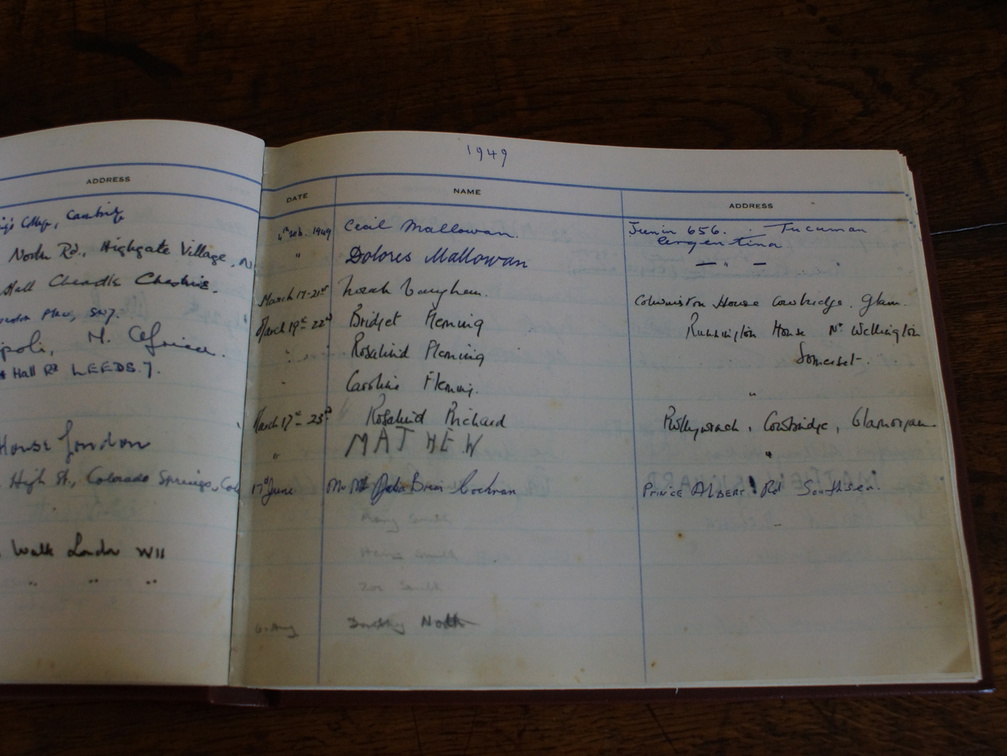 ADDRESS
College, Cambridge
North Rd., Highgate Village, N
Hall Cheadle Cheshire.
Place, SW7.
N. Africa.
Hall Rd LEEDS. 7.
House London
High St., Colorado Springs, Col
Walk London W11
" " "
1949
DATE NAME ADDRESS
Feb. 1949 Cecil Mallowan. Junin 656. - Tucuman
Argentina
" Dolores Mallowan — " —
March 17-21st Vaughan. Colwinston House Cowbridge. Glam.
March 19th 22nd Bridget Fleming Runnington House Nr Wellington
" " Rosalind Fleming Somerset.
" Caroline Fleming. "
March 17th - 23rd Rosalind Prichard Pwllywrach, Cowbridge, Glamorgan.
" MATHEW "
17th June Mr Cochran Prince Albert Rd Southsea.
Mary Smith
Smith
Smith
6. Aug Dorothy North